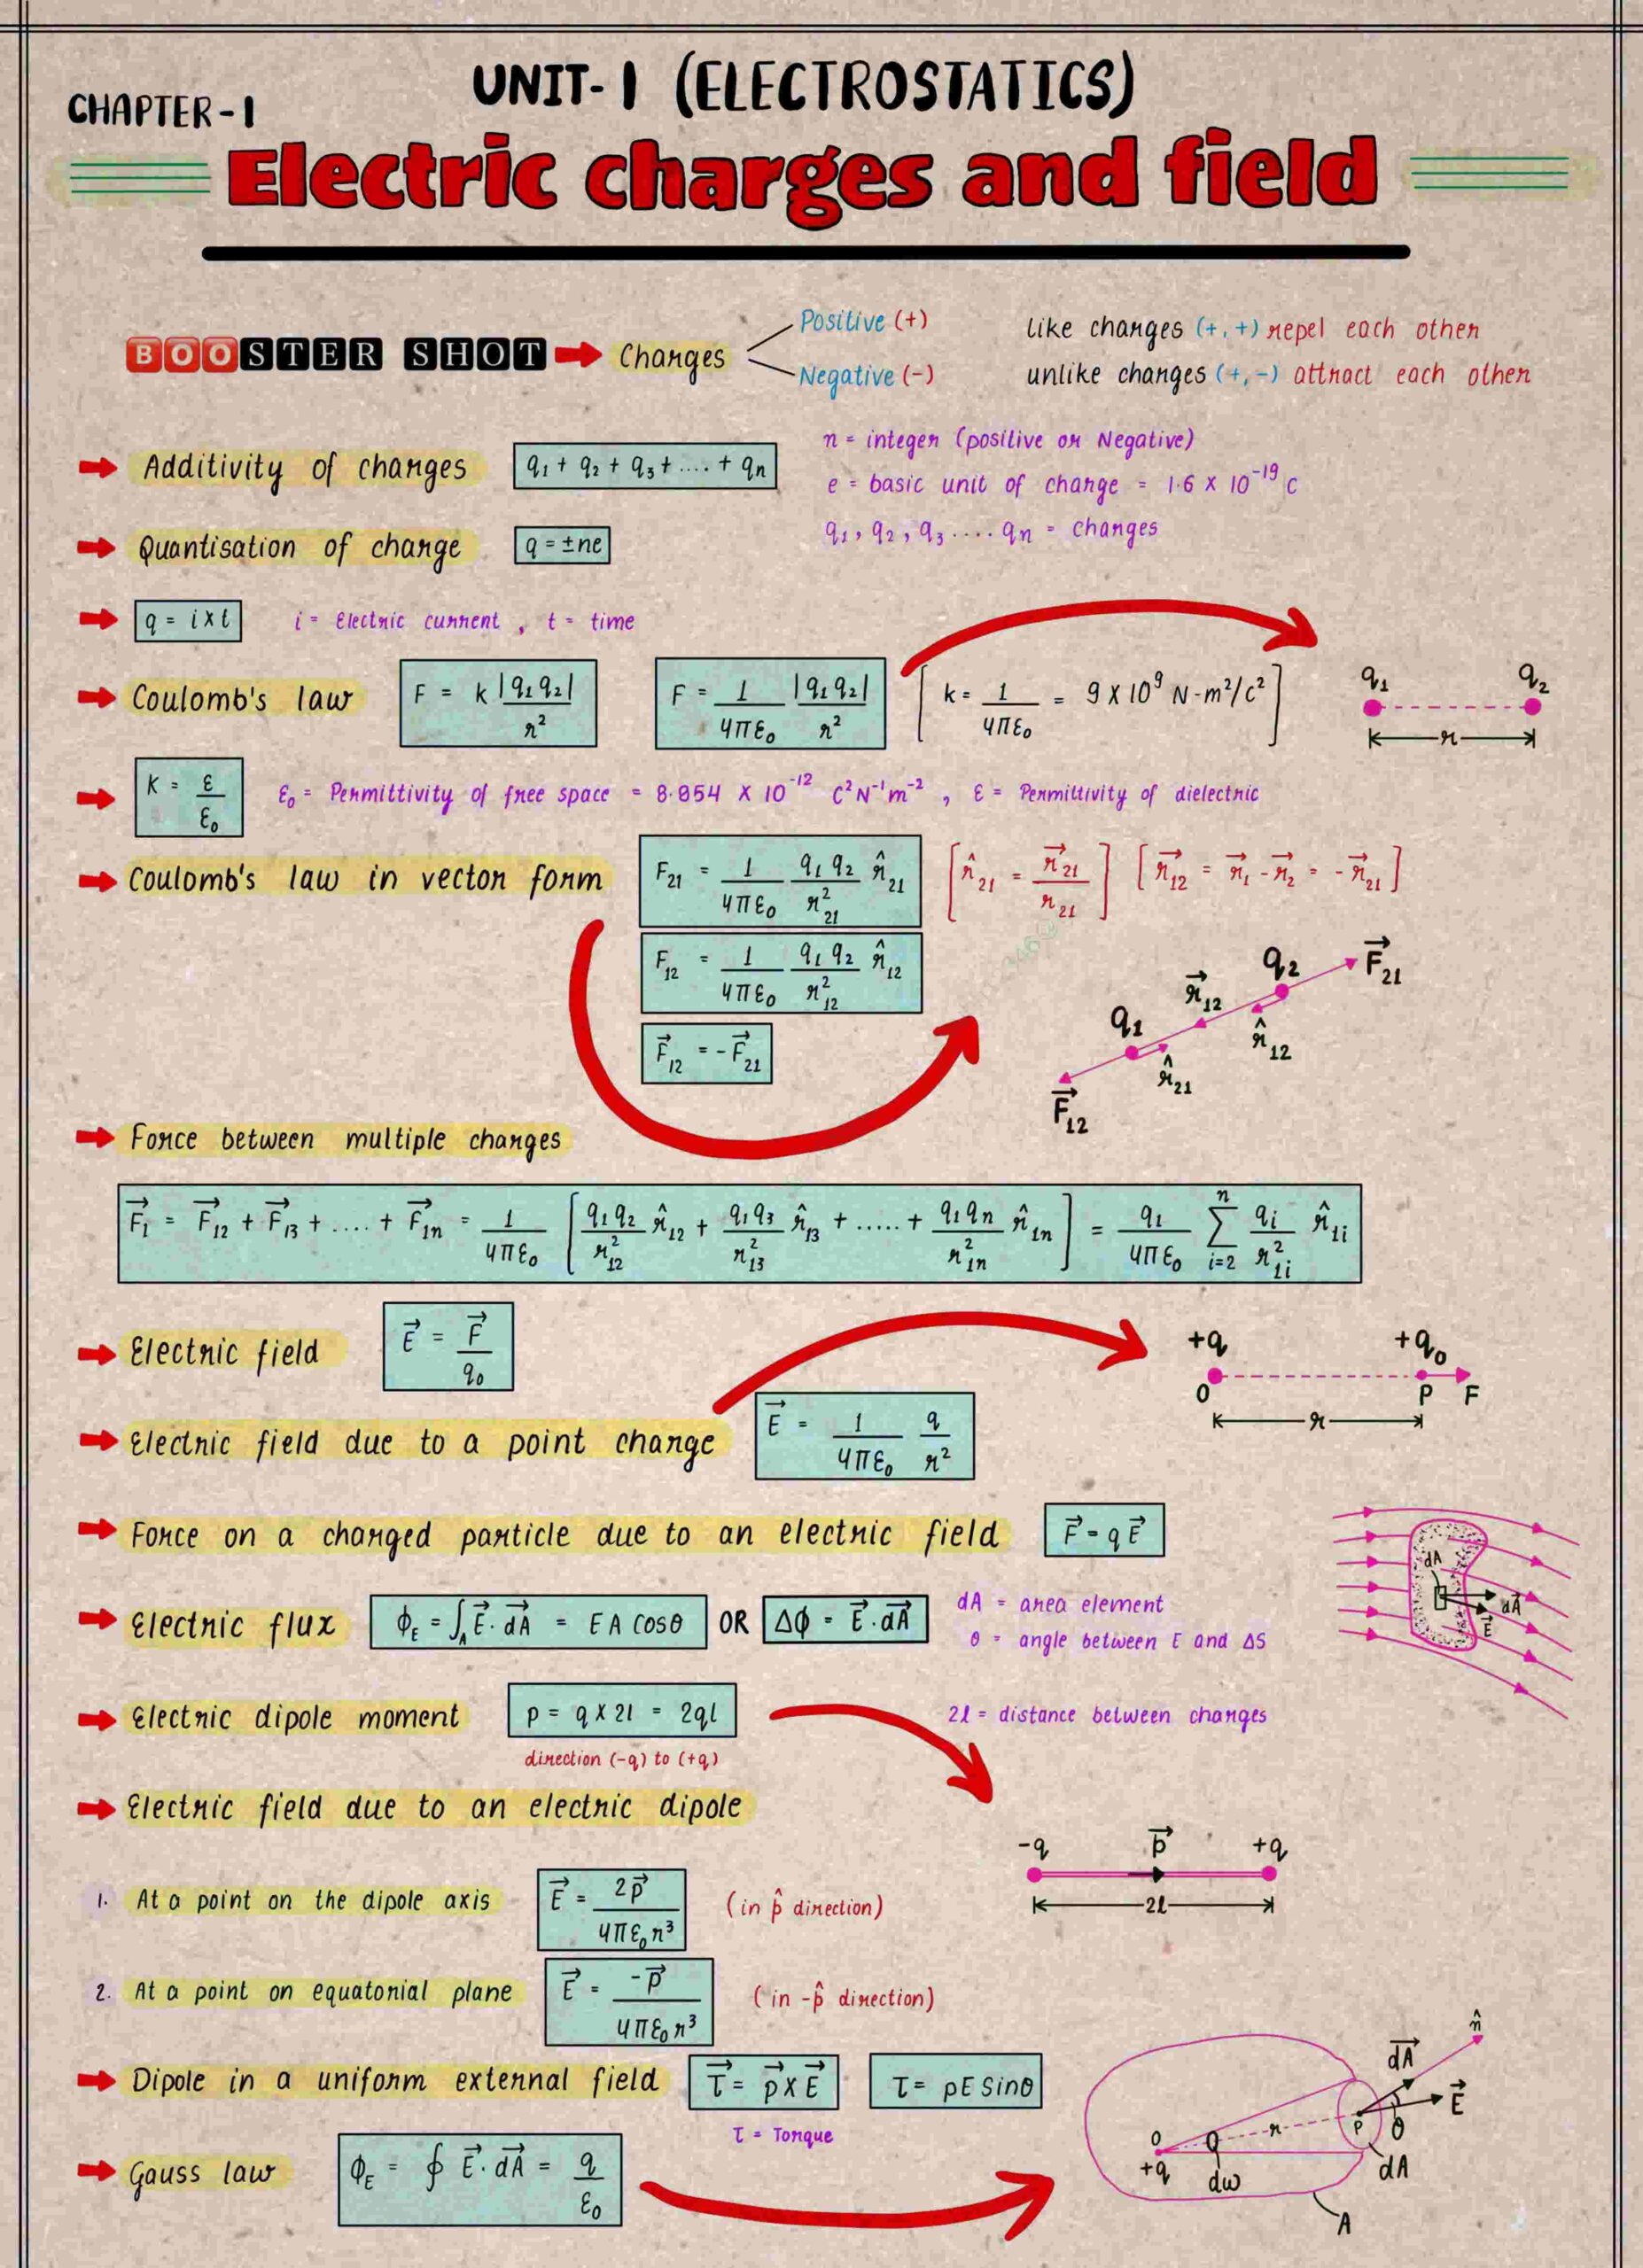 CHAPTER-1
UNIT-1 (ELECTROSTATICS)
Electric charges and field
BOOSTER SHOT → Charges
Positive (+)
Negative (-)
like charges (+,+) repel each other
unlike charges (+,-) attract each other
Additivity of charges q₁ + q₂ + q₃ + .... + qₙ
n = integer (positive or Negative)
e = basic unit of charge = 1.6 × 10⁻¹⁹ c
q₁, q₂, q₃ .... qₙ = charges
Quantisation of charge q = ±ne
q = i×t i = Electric current , t = time
Coulomb's law F = k |q₁q₂| / r² F = 1/4πε₀ |q₁q₂| / r² [k = 1/4πε₀ = 9 × 10⁹ N-m²/c²]
q₁ q₂
r
K = ε/ε₀ ε₀ = Permittivity of free space = 8.854 × 10⁻¹² C²N⁻¹m⁻² , ε = Permittivity of dielectric
Coulomb's law in vector form F₂₁ = 1/4πε₀ q₁q₂/r²₂₁ r̂₂₁ [r̂₂₁ = r⃗₂₁/r₂₁] [r⃗₁₂ = r⃗₁ - r⃗₂ = -r⃗₂₁]
F₁₂ = 1/4πε₀ q₁q₂/r²₁₂ r̂₁₂
F⃗₁₂ = -F⃗₂₁
q₂ F⃗₂₁
r⃗₁₂
q₁ r̂₁₂
r̂₂₁
F⃗₁₂
Force between multiple charges
F⃗₁ = F⃗₁₂ + F⃗₁₃ + .... + F⃗₁ₙ = 1/4πε₀ [q₁q₂/r²₁₂ r̂₁₂ + q₁q₃/r²₁₃ r̂₁₃ + ..... + q₁qₙ/r²₁ₙ r̂₁ₙ] = q₁/4πε₀ Σⁿᵢ₌₂ qᵢ/r²₁ᵢ r̂₁ᵢ
Electric field E⃗ = F⃗/q₀
+q +q₀
O P F
r
Electric field due to a point charge E⃗ = 1/4πε₀ q/r²
Force on a charged particle due to an electric field F⃗ = qE⃗
dA
dA⃗
E⃗
Electric flux ϕ_E = ∫_A E⃗.dA⃗ = EA Cosθ OR Δϕ = E⃗.dA⃗
dA = area element
θ = angle between E and ΔS
Electric dipole moment p = q×2l = 2ql
direction (-q) to (+q)
2l = distance between charges
Electric field due to an electric dipole
-q p⃗ +q
2l
1. At a point on the dipole axis E⃗ = 2p⃗/4πε₀r³ (in p̂ direction)
2. At a point on equatorial plane E⃗ = -p⃗/4πε₀r³ (in -p̂ direction)
Dipole in a uniform external field τ⃗ = p⃗×E⃗ τ = pE Sinθ
τ = Torque
Gauss law ϕ_E = ∮ E⃗.dA⃗ = q/ε₀
n̂
dA⃗
E⃗
O r P θ
+q dω dA
A